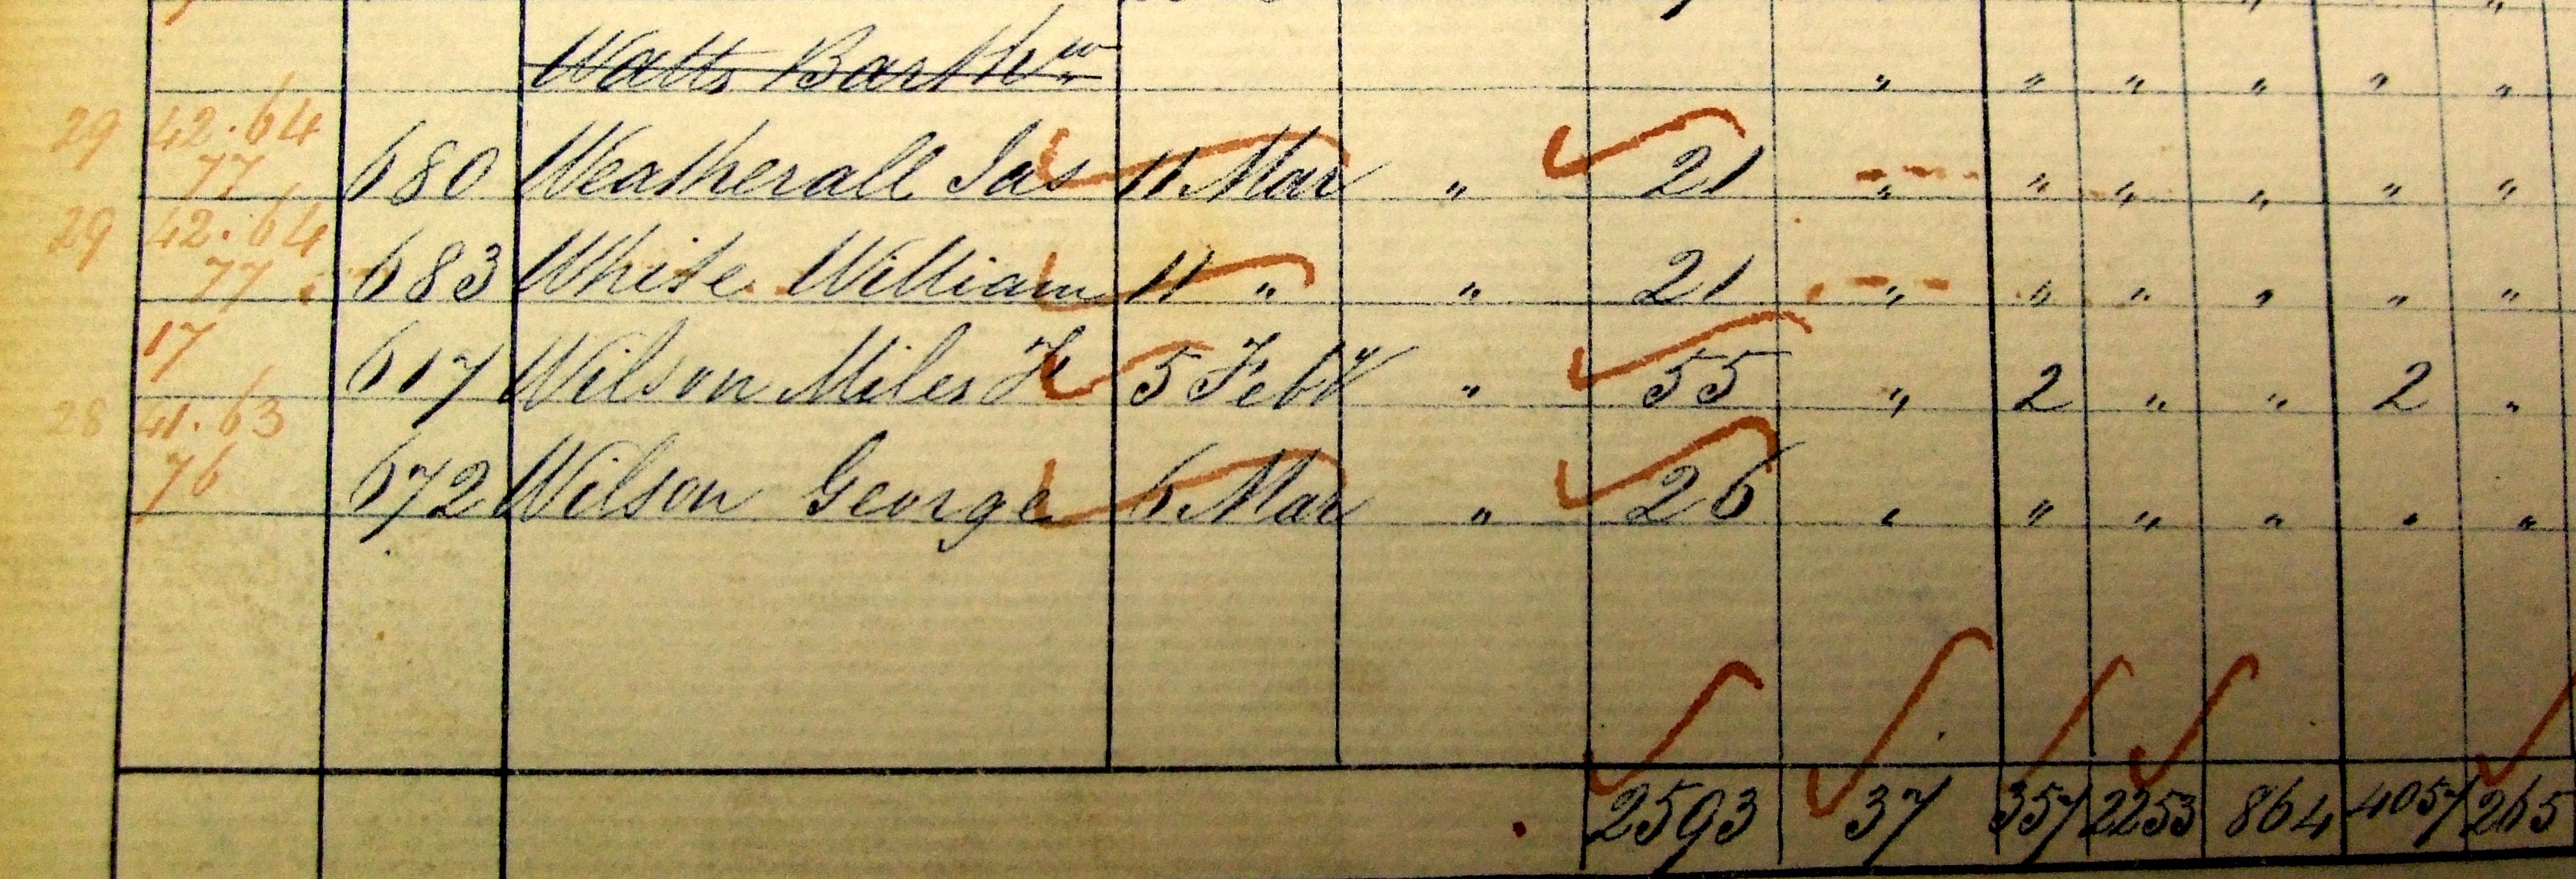 Watts Barthw " " " " " "
29 42.64
77 680 Weatherall Jas 11 Mar " 21 " " " " " "
29 42.64
77 683 White William 11 " " 21 " " " " " "
17 617 Wilson Miles H 5 Feby " 55 " 2 " " 2 "
28 41.63
76 672 Wilson George 6 Mar " 26 " " " " " "
2593 37 357 2253 864 4057 265